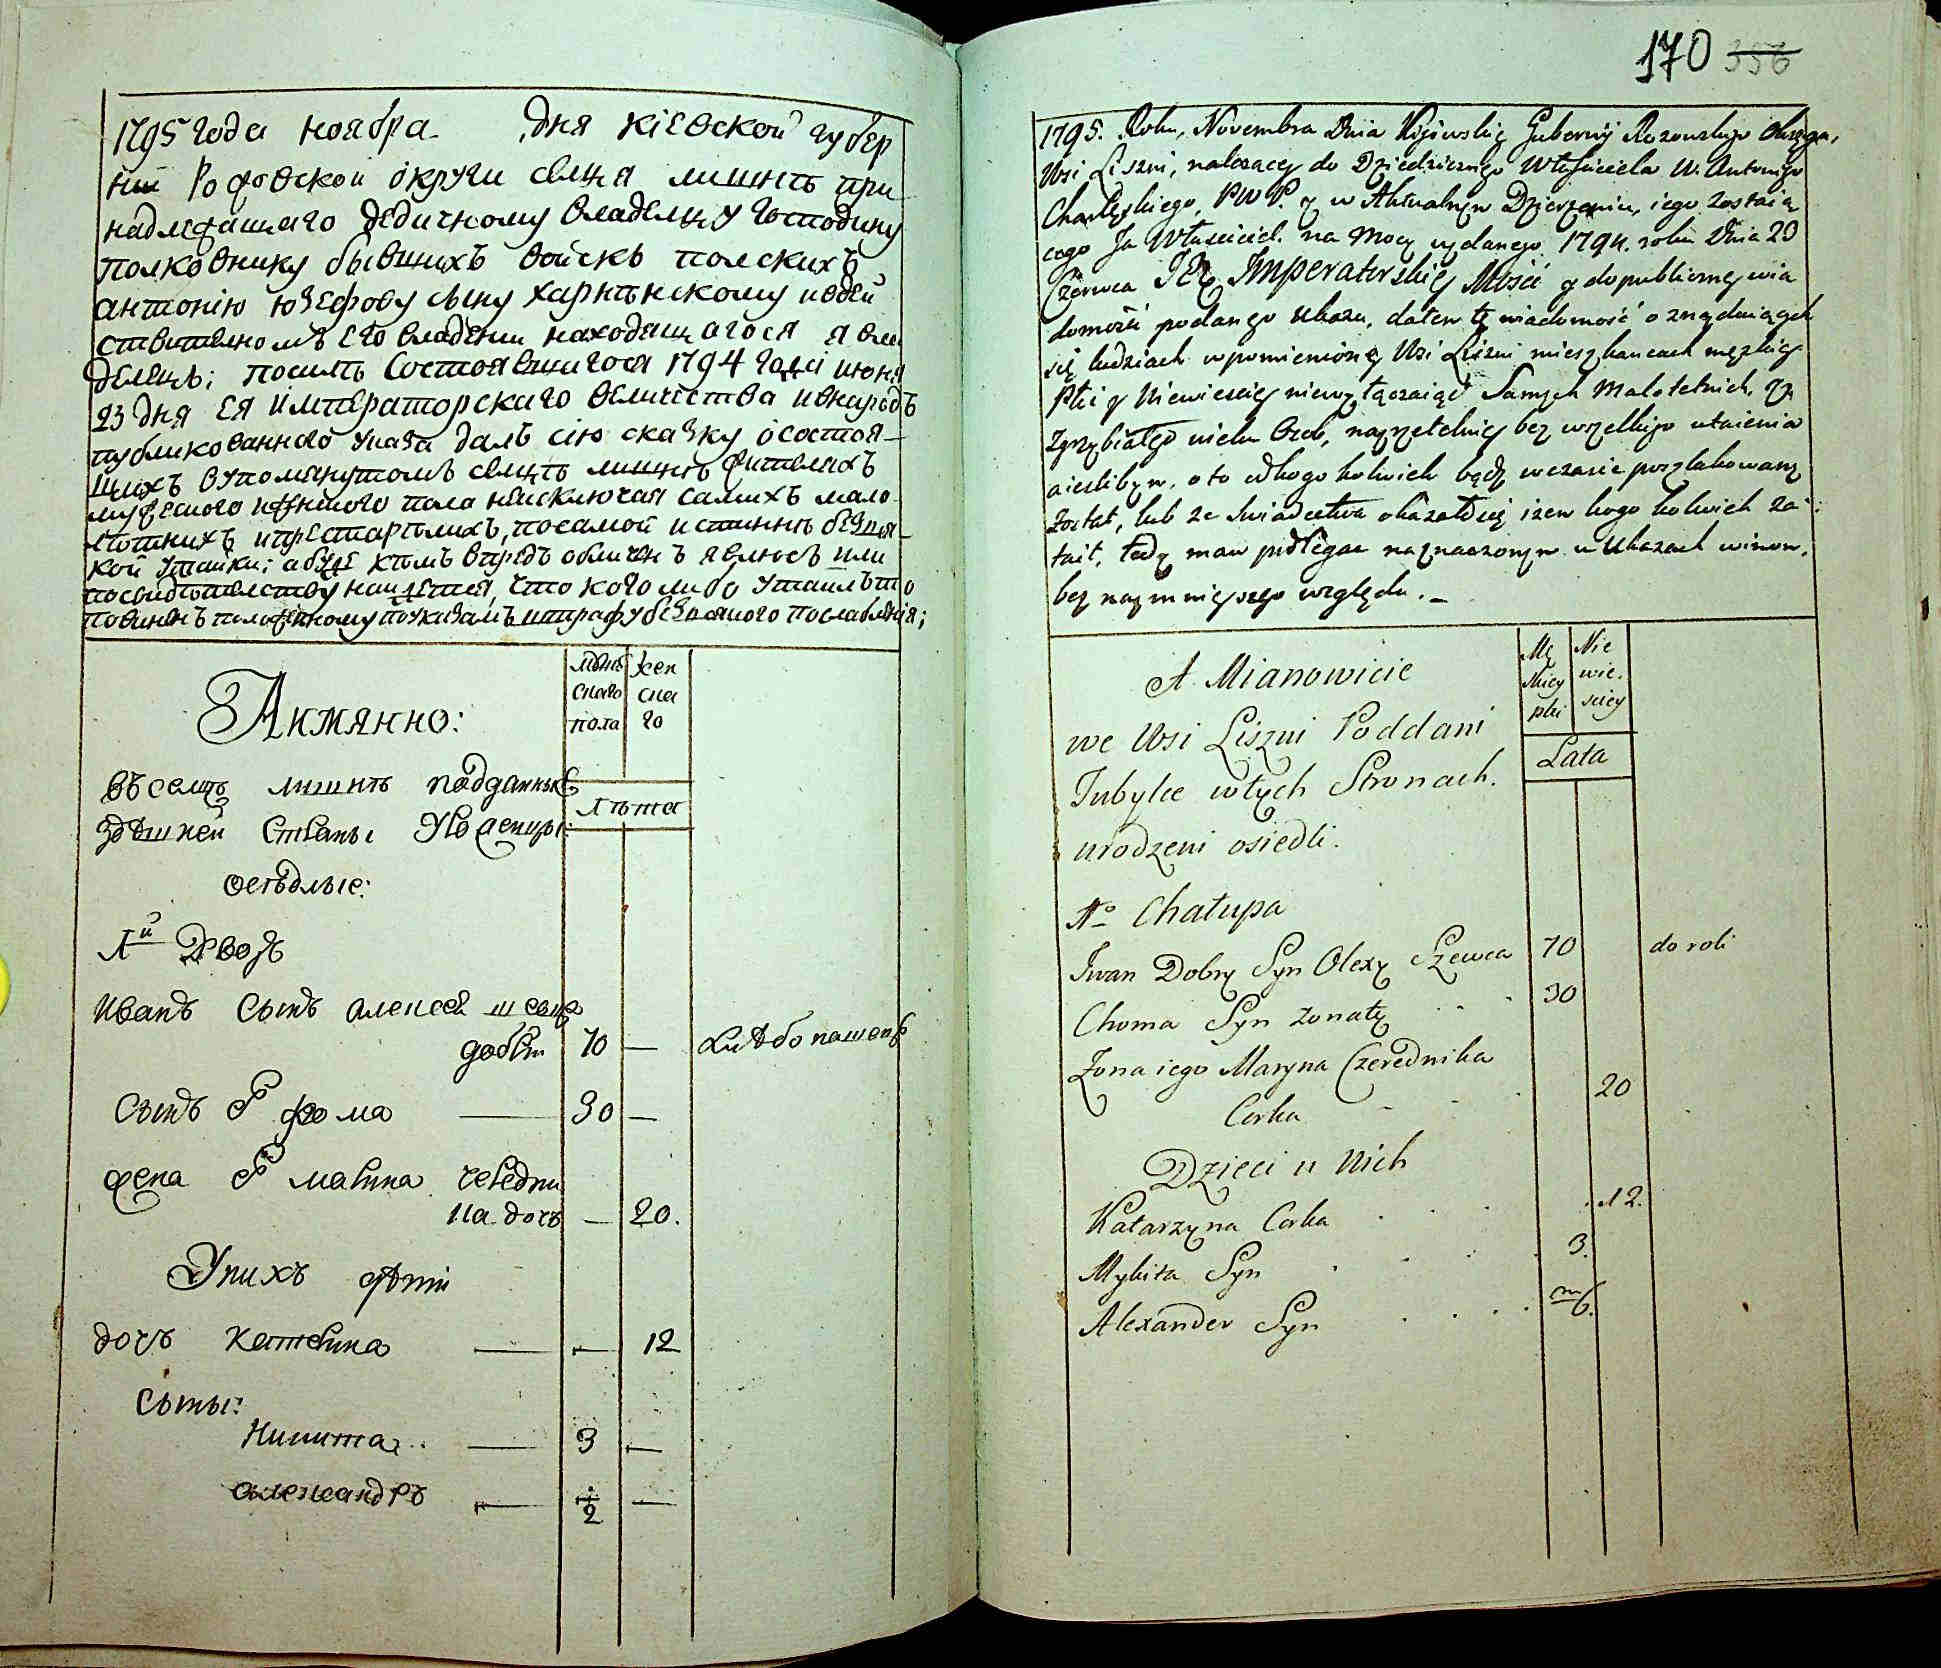 1795 года ноября дня кіевской губер
ніи Рожовской округи селца лишнѣ при
надлежащаго дедичному владелцу господину
полковнику бывшихъ войскъ полскихъ
антонію юзефову сыну харлѣнскому и въ дей
ствителномъ его владеніи находящагося я вла
делецъ; посилѣ состоявшагося 1794 года июня
23 дня ея императорскаго величества и въ народъ
публикованнаго указа далъ сію сказку о состоя-
щихъ въ упомянутомъ селцѣ лишнѣ жителяхъ
мужеского и женского пола не исключая самихъ мало-
летнихъ и престарелихъ, по самой истиннѣ без вся-
кой утайки; а буде кемъ впредь обличенъ явлюсь или
по свидѣтелству найдется, что кого либо утаилъ то
повиненъ положенному по указамъ штрафу без всякого послабленія;
А имянно:
муже
ского
пола
жен
ска
го
въ селцѣ лишнѣ подданные
здѣшней страны уроженцы:
оседлые:
лѣта
1й Дворъ
Иванъ сынъ алексея шевца
добри 70 — хлѣбопашецъ
сынъ его фома — 30 —
жена его марина чередни
ка дочь — 20.
У нихъ дѣти
дочь катерина — — 12
сыны:
никита — 3 —
александръ — 1/2 —
170 336
1795. Roku, Novembra Dnia Kijowskiey Gubernij Rozowskiego Okręgu,
Wsi Liszni, należącey do Dziedzicznego Właściciela W. Antoniego
Charlęskiego, P W P. y w Aktualnym Dzierżeniu, iego zostaią
cego Ja Właściciel. na Mocy wydanego 1794. roku Dnia 23
Czerwca JEy Imperatorskiey Mości y do publiczney wia
domości podanego Ukazu, daiem tę wiadomość o znayduiących
się ludziach w pomienioney Wsi Liszni mieszkancach męzkiey
Płci y Niewiesciey niewyłączaiąc Samych Małoletnich, y
Zgrzybiałego wieku Osob, nayrzetelniey bez wszelkiego utaienia
a ieslibym, o to od kogokolwiek bądź wczasie poszlakowany
został, lub ze Swiadectwa okazałoby się izem kogo kolwiek za
tait, tedy mam podlegac naznaczonym w Ukazach winom,
bez naymnieyszego względu. –
A Mianowicie
Mę
skiey
płci
Nie
wie.
sciey
we Wsi Liszni Poddani
Tubylce w tych Stronach.
urodzeni osiedli.
Lata
1o Chałupa
Iwan Dobry Syn Olexy Szewca 70 do roli
Choma Syn żonaty . . 30
Żona iego Maryna Czerednika
Corka . . . 20
Dzieci u Nich
Katarzyna Corka . . . 12.
Mykita Syn . . . 3.
Alexander Syn . . . m/6.